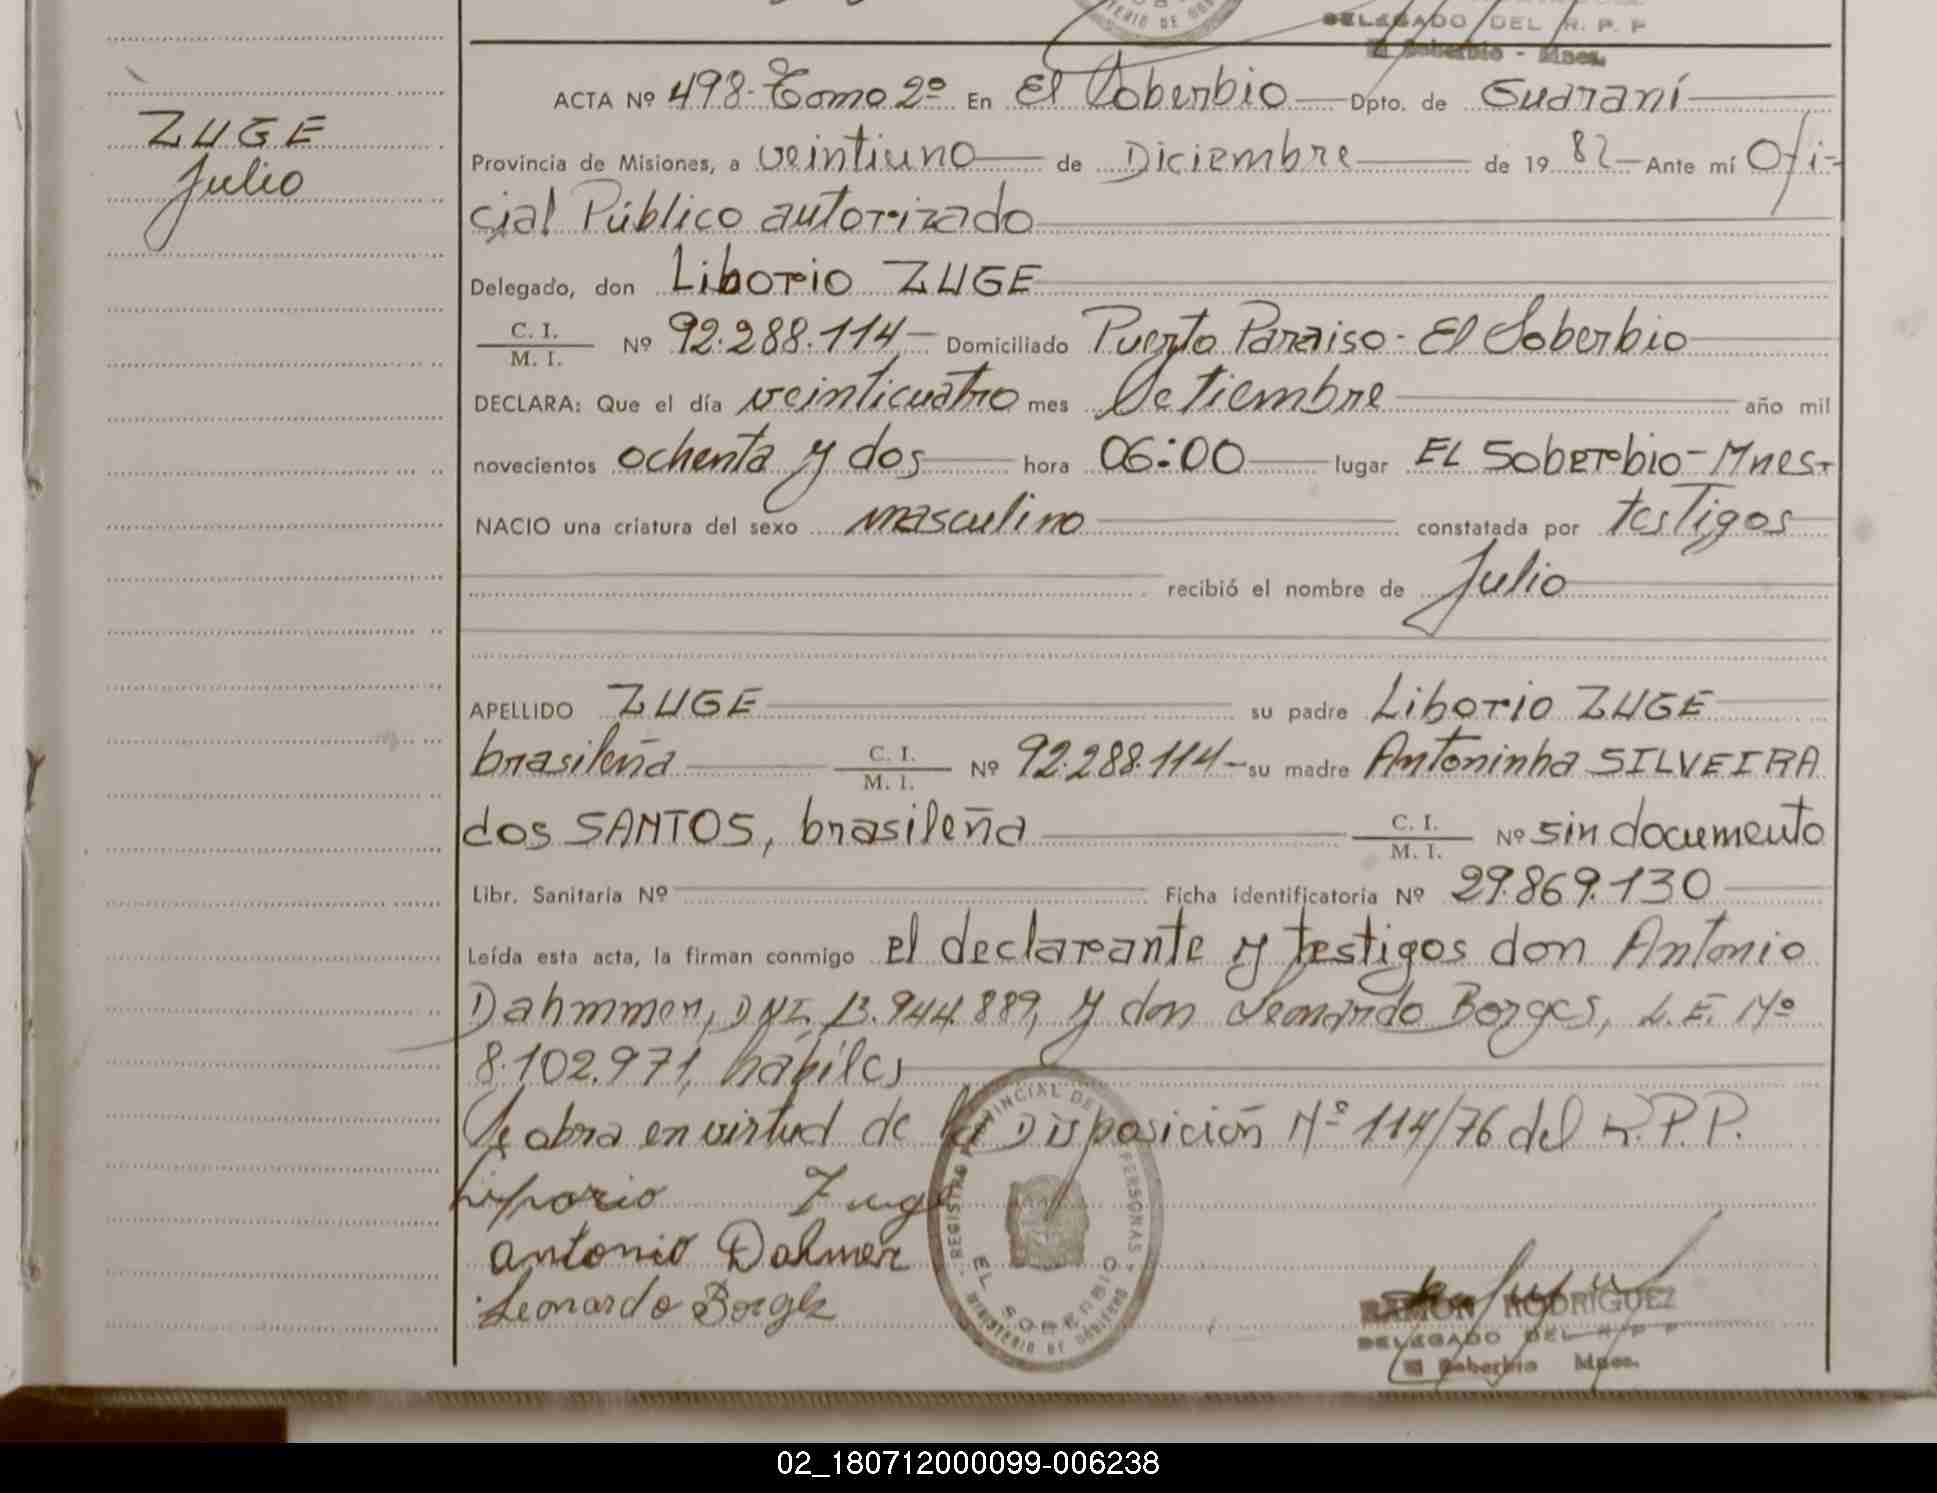 DELEGADO DEL R. P. P
El Soberbio - Mnes.
ZUGE
Julio
ACTA Nº 498- Tomo 2º En El Soberbio Dpto. de Guaraní
Provincia de Misiones, a veintiuno de Diciembre de 1982 Ante mí Ofi-
cial Público autorizado
Delegado, don Liborio ZUGE
C. I.
M. I. Nº 92.288.114 Domiciliado Puerto Paraiso - El Soberbio
DECLARA: Que el día veinticuatro mes Setiembre año mil
novecientos ochenta y dos hora 06:00 lugar EL Soberbio-Mnes.
NACIO una criatura del sexo masculino constatada por testigos
recibió el nombre de Julio
APELLIDO ZUGE su padre Liborio ZUGE
brasileña C. I. M. I. Nº 92.288.114 su madre Antoninha SILVEIRA
dos SANTOS, brasileña C. I. M. I. Nº sin documento
Libr. Sanitaria Nº Ficha identificatoria Nº 29.869.130
Leída esta acta, la firman conmigo el declarante y testigos don Antonio
Dahmmer, DNI. 13.944.889, y don Leonardo Borges, L.E. Nº
8.102.971, hábiles
Se obra en virtud de la Disposición Nº 114/76 del R.P.P.
Liborio Zuge
Antonio Dahmer
Leonardo Borges
REGISTRO PROVINCIAL DE LAS PERSONAS
EL SOBERBIO
MINISTERIO DE GOBIERNO
RAMON RODRIGUEZ
DELEGADO DEL R P P
El Soberbio Mnes.
02_180712000099-006238